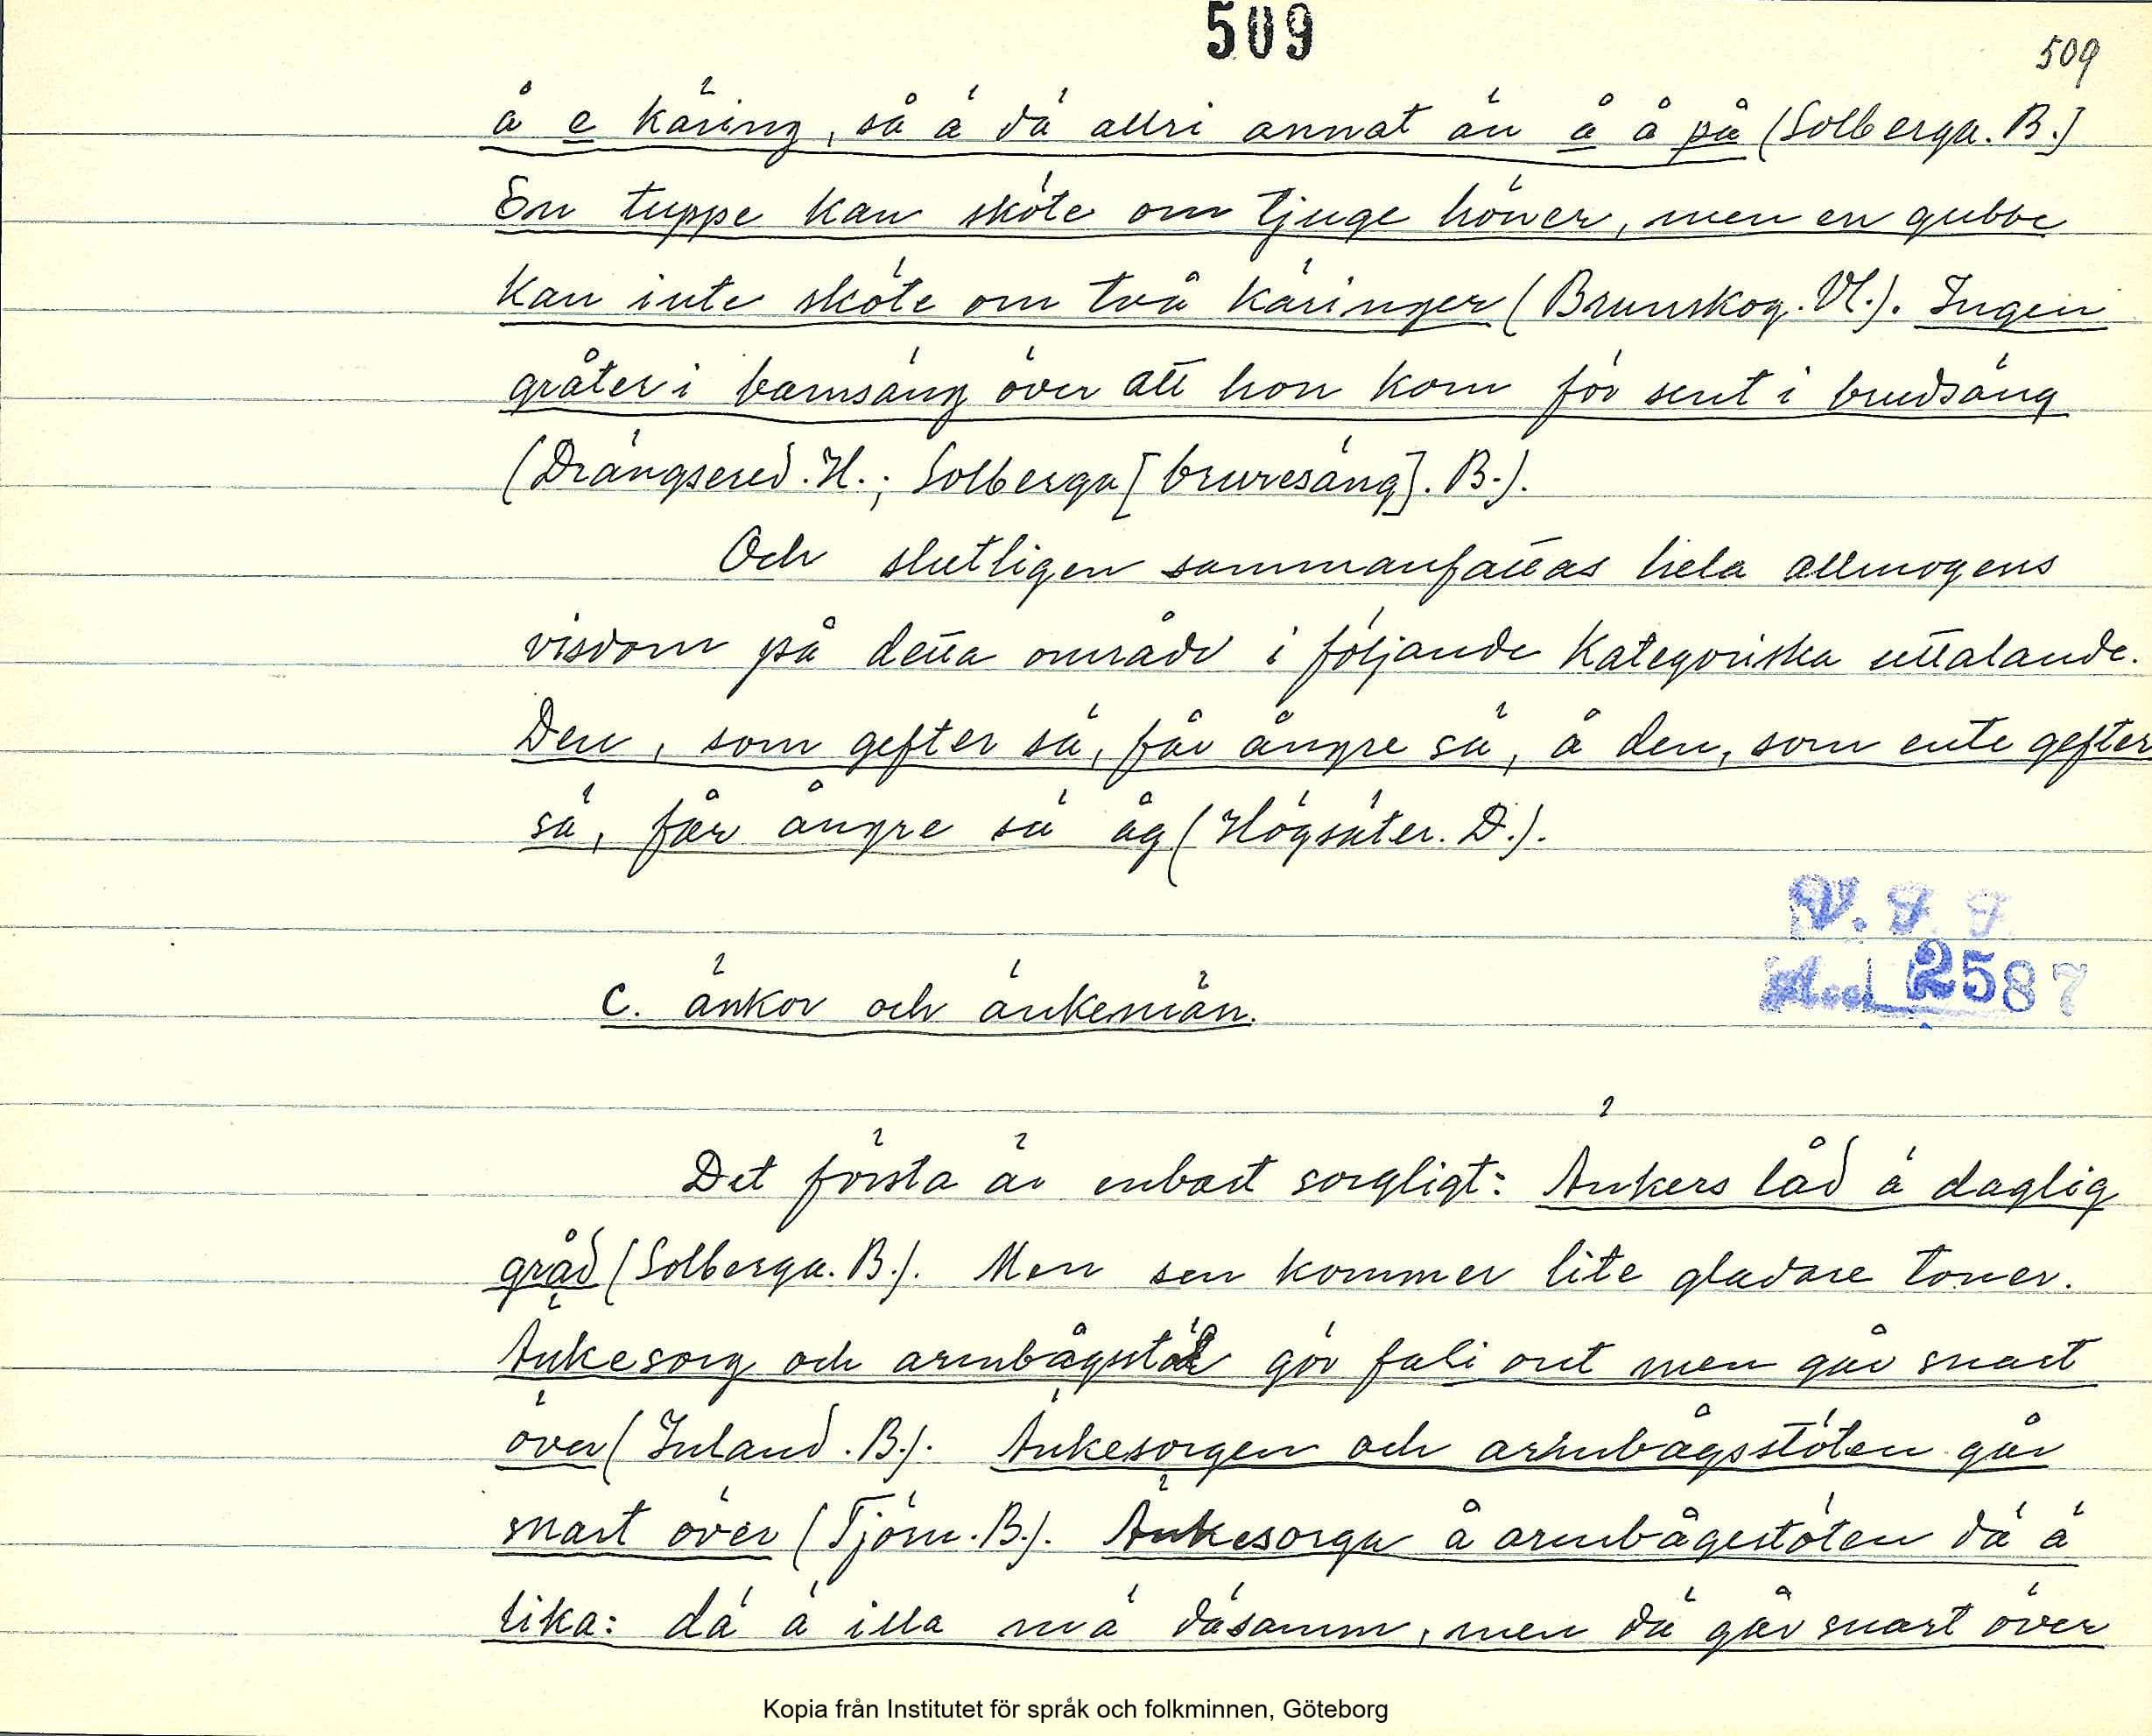 509
509
å e käring, så ä dä allri annat än å å på (Solberga. B.)
En tuppe kan sköte om tjuge höner, men en gubbe
kan inte sköte om två käringer (Brunskog. Vl.). Ingen
gråter i barnsäng över att hon kom för sent i brudsäng
(Drängsered. H.; Solberga [bruresäng]. B.).
Och slutligen sammanfattas hela allmogens
visdom på detta område i följande kategoriska uttalande.
Den, som gefter sä, får ångre sä, å den, som ente gefter
sä, får ångre sä åg (Högsäter. D.).
V. F. F.
Acc 2587
C. änkor och änkemän.
Det första är enbart sorgligt: Änkers låd ä daglig
gråd (Solberga. B.). Men sen kommer lite gladare toner.
Änkesorg och armbågstöt gör fali ont men går snart
över (Inland. B.). Änkesorgen och armbågsstöten går
snart över (Tjörn. B.). Änkesorga å armbågestöten dä ä
lika: dä ä illa mä däsamm, men dä går snart över
Kopia från Institutet för språk och folkminnen, Göteborg